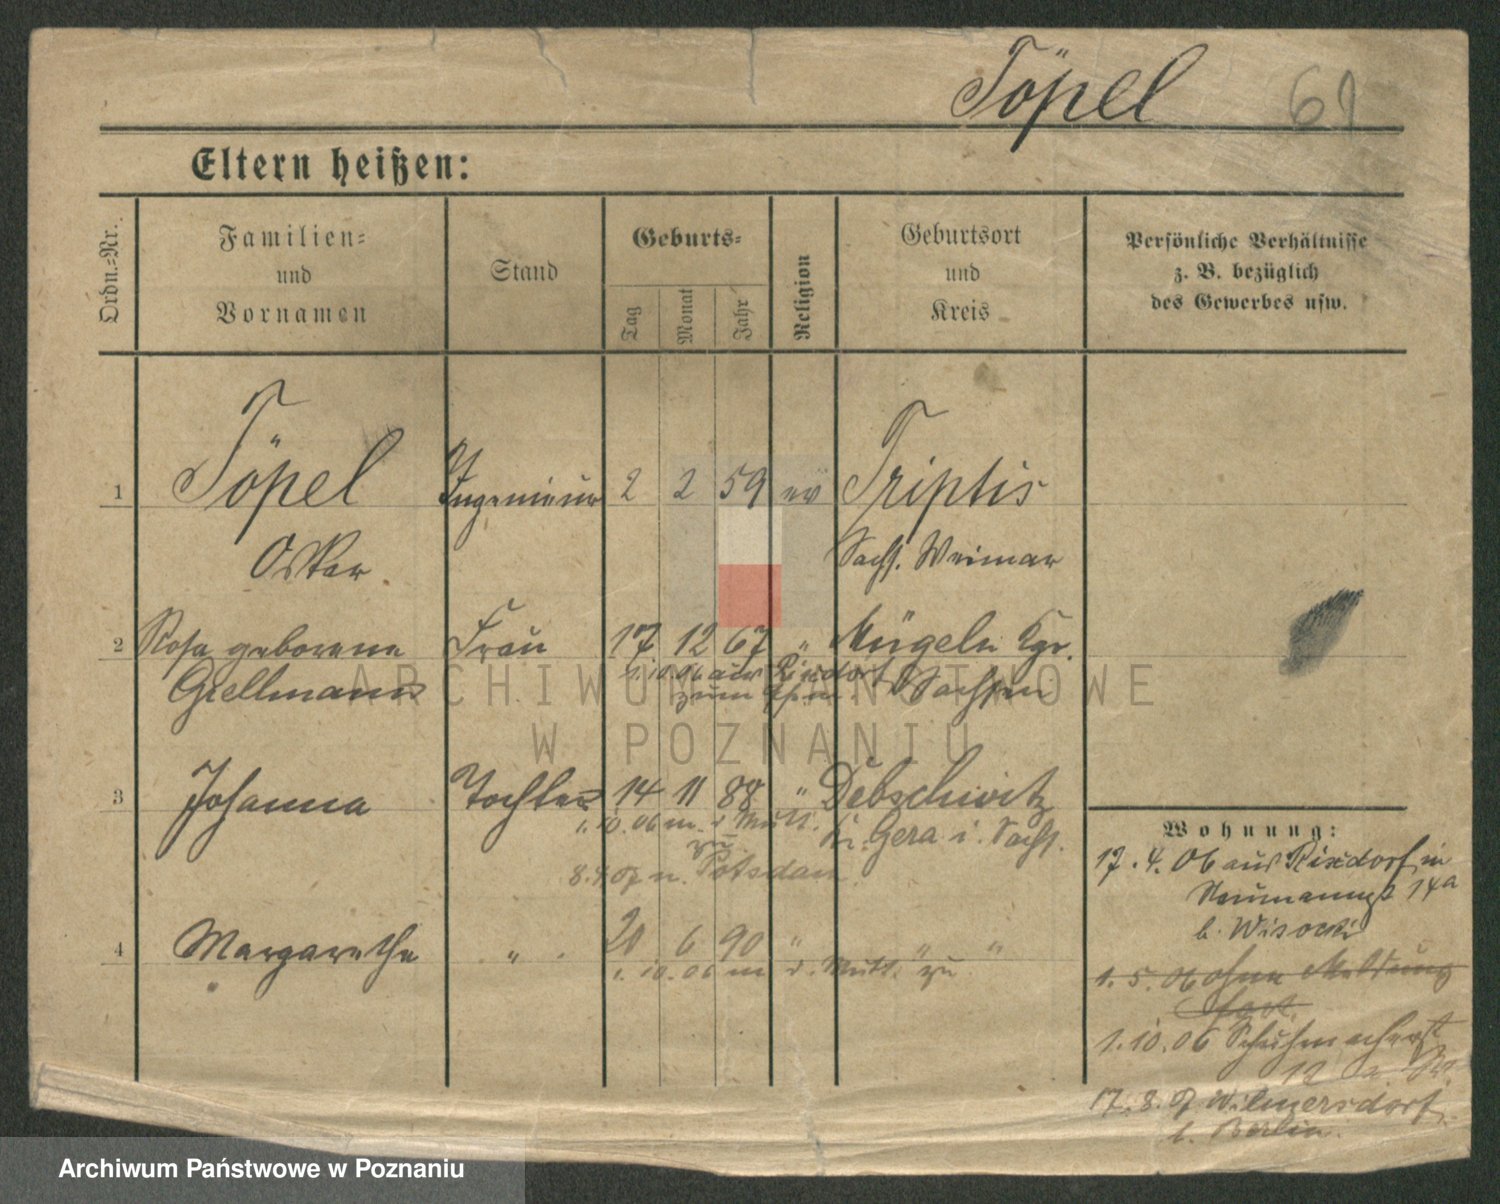 Töpel 61
Eltern heißen:
Ordn.-Nr.
Familien-
und
Vornamen
Stand
Geburts-
Tag
Monat
Jahr
Religion
Geburtsort
und
Kreis
Persönliche Verhältnisse
z. B. bezüglich
des Gewerbes usw.
1 Töpel Ingenieur 2 2 59 ev Triptis
Oskar Sachs. Weimar
2 Rosa geborene Frau 17 12 67 " Mügeln Kgr.
Grellmann 1.10.06 aus Rixdorf Sachsen
zum
3 Johanna Tochter 14 11 88 " Debschwitz
1.10.06 m. d. Mutt. b. Gera i. Sachs.
zu
8.4.07 n. Potsdam
4 Margarethe " 20 6 90 " " "
1.10.06 m d. Mutt. zu
Wohnung:
17.4.06 aus Rixdorf in
Neumannst 14a
b. Wisocki
1.5.06 ohne Meldung
fort.
1.10.06 Schuhmacherst
12
17.8.07 Wilmersdorf
b. Berlin.
ARCHIWUM PAŃSTWOWE
W POZNANIU
Archiwum Państwowe w Poznaniu